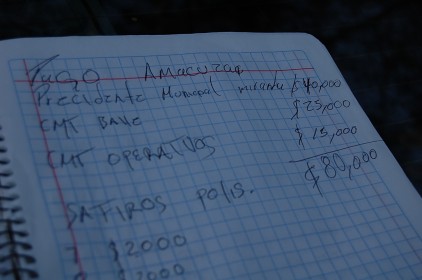 Pago Amacuzac
Precidente Municipal miranda $40,000
CMT BAVE $25,000
CMT OPERATIVOS $15,000
$80,000
SATIROS polis.
$2000
$2000